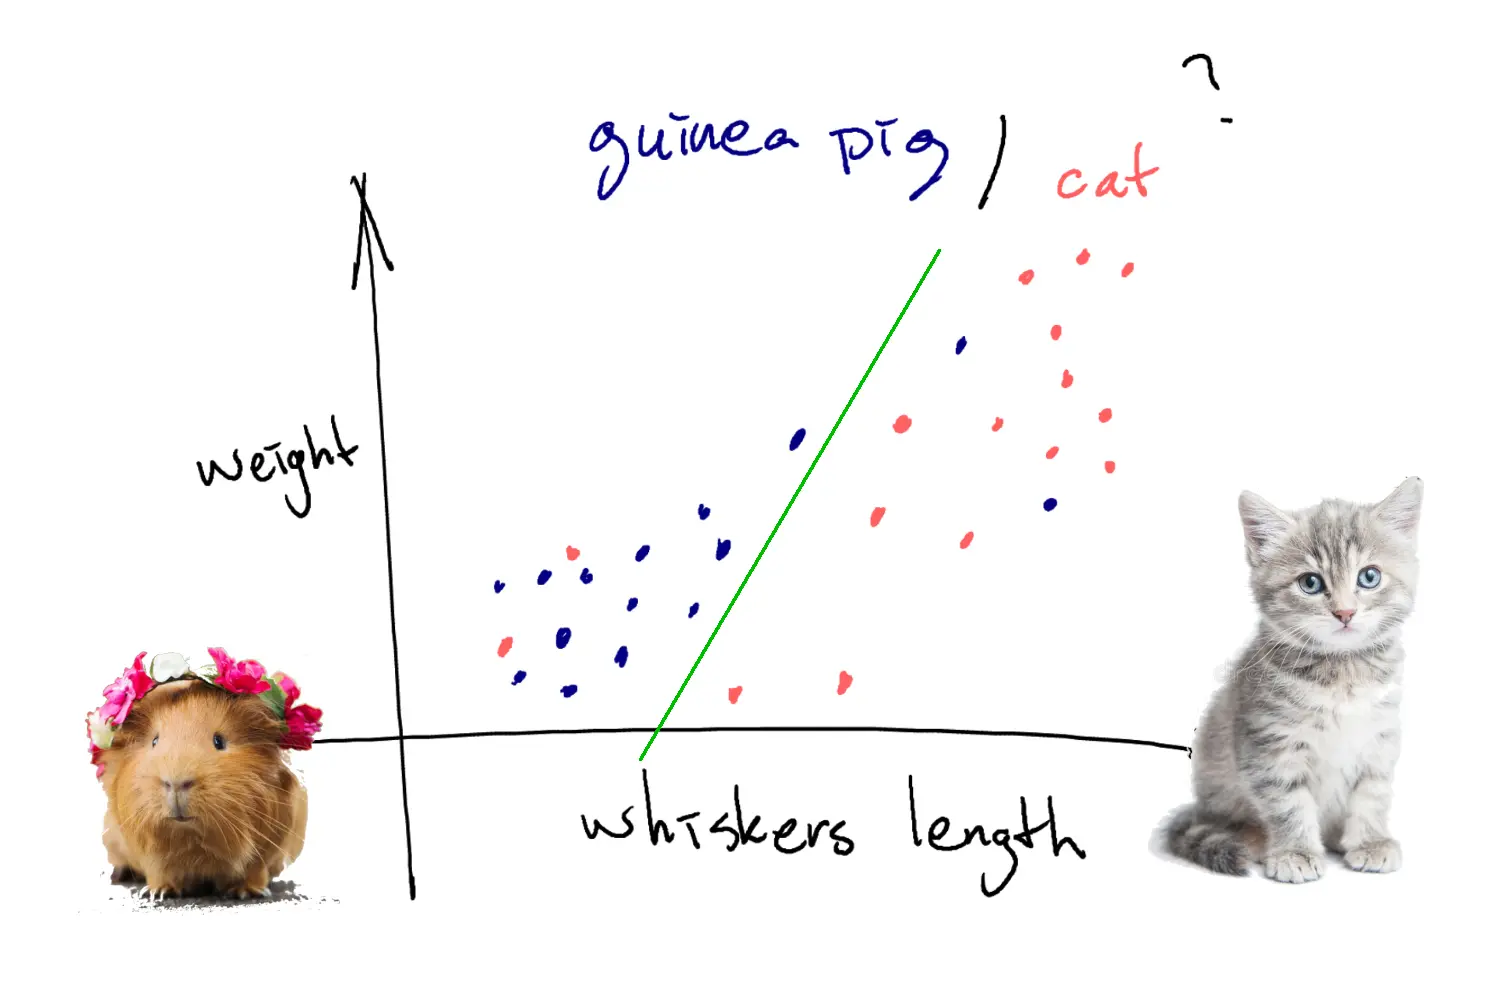 ?
guinea pig / cat
weight
whiskers length